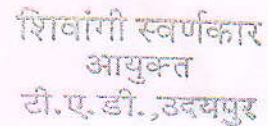 शिवांगी स्वर्णकार
आयुक्त
टी.ए.डी.,उदयपुर